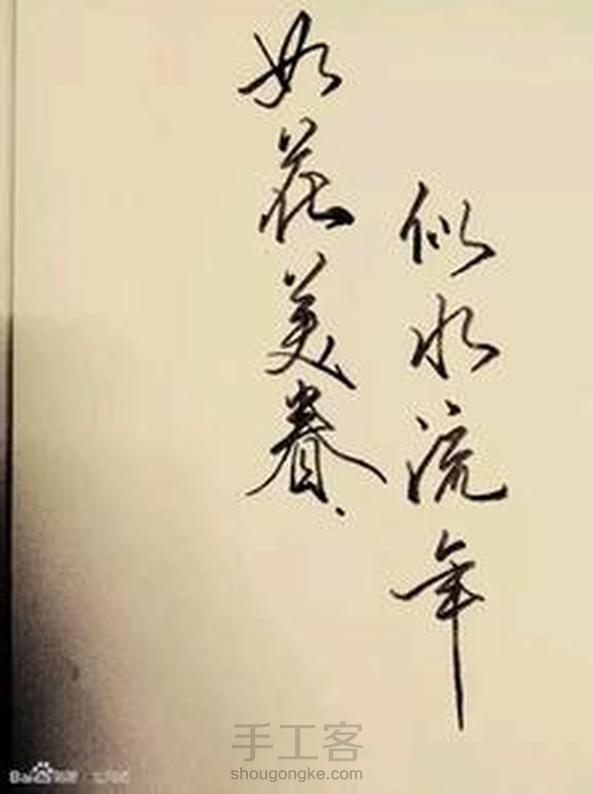 如花美眷、
似水流年
手工客
shougongke.com
Bai